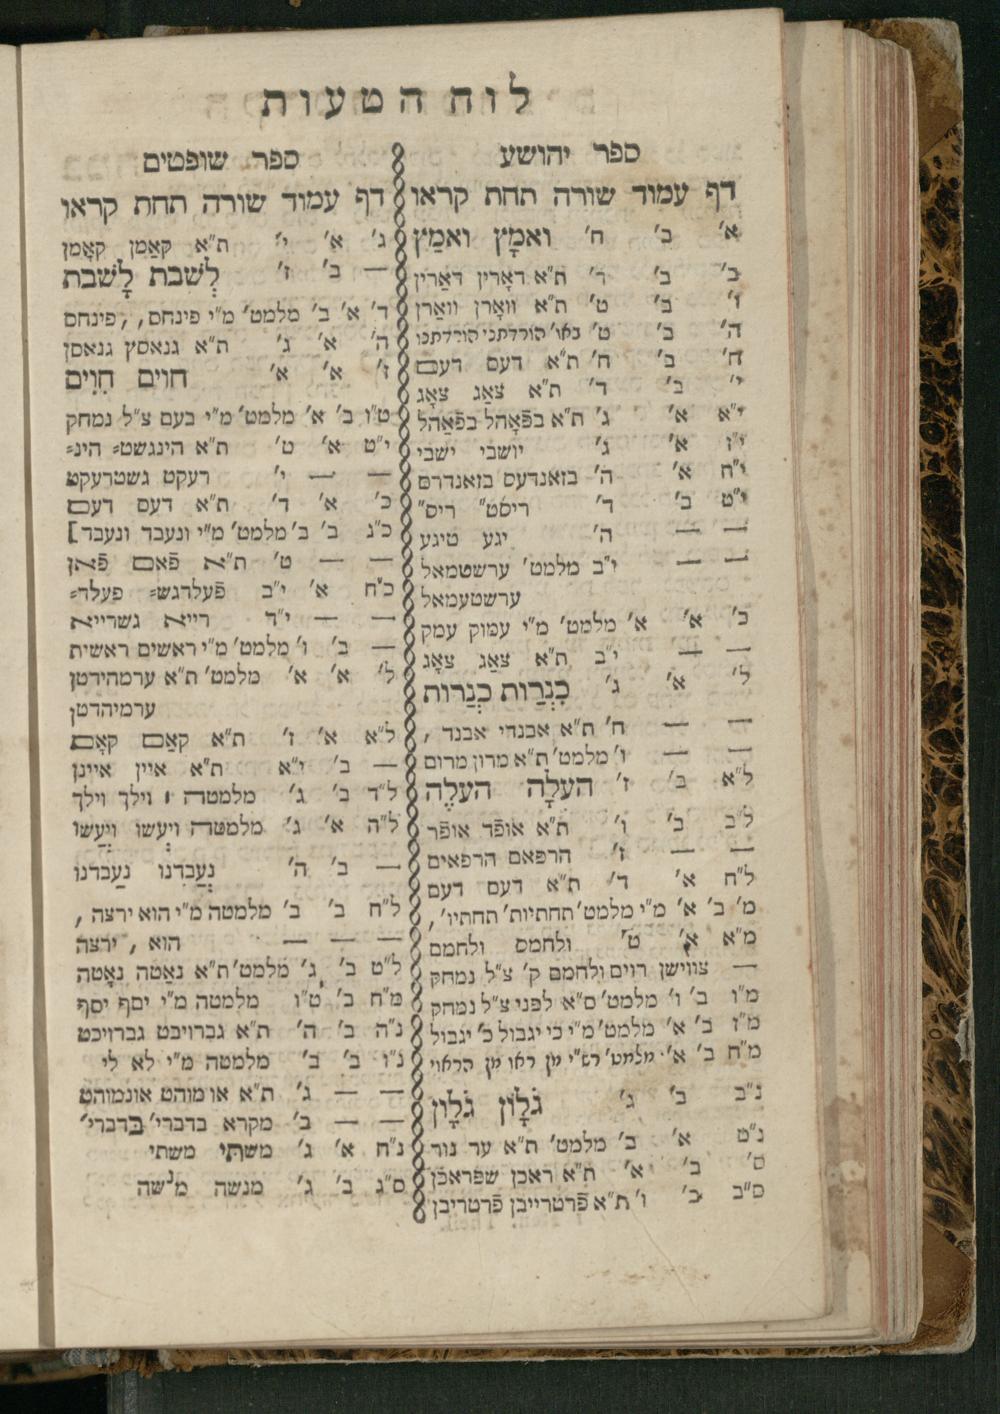 לוח הטעות
ספר יהושע
דף עמוד שורה תחת קראו
א׳ ב׳ ח׳ ואמָץ ואמַץ
ב׳ ב׳ ד׳ ת״א דאָרין דאַרין
ו׳ ב׳ ט׳ ת״א וואָרן וואַרן
ה׳ ב׳ ט׳ באו׳ הורדתני הורדתנו
ח׳ ב׳ ח׳ ת״א דעס דעם
י׳ ב׳ ד׳ ת״א צאַג צאָג
י״א א׳ ג׳ ת״א בפֿאָהל בפֿאַהל
י״ז א׳ ג׳ יושבי ישבי
י״ח א׳ ה׳ בזאנדעס בזאנדרס
י״ט ב׳ ד׳ ריסט״ ריס״
— — ה׳ יגע טיגע
— — י״ב מלמט׳ ערשטמאל
ערשטעמאל
כ׳ א׳ א׳ מלמט׳ מ״י עמוק עמק
— — י״ב ת״א צאַג צאָג
ל׳ א׳ ג׳ כִנְרַות כִנֲרות
— — ח׳ ת״א אבנדי אבנד ,
— — ו׳ מלמט׳ ת״א מדון מרום
ל״א ב׳ ז׳ העלָה העלֶה
ל״ב ב׳ ו׳ ת״א אופֿד אופֿר
— — ז׳ הרפאם הרפאים
ל״ח א׳ ד׳ ת״א דעס דעם
מ׳ ב׳ א׳ מ״י מלמט׳ תחתיות׳ תחתיו׳,
מ״א א׳ ט׳ ולחמס ולחמם
— צווישן רוים ולחמם ק׳ צ״ל נמחק
מ״ו ב׳ ו׳ מלמט׳ ס״א לפני צ״ל נמחק
מ״ז ב׳ א׳ מלמט׳ מ״י כי יגבול כ׳ יגבול
מ״ח ב׳ א׳ מלמט׳ רש״י מן ראו מן הראוי
נ״ב ב׳ ג׳ גֹלָון גֹלָון
נ״ט א׳ ב׳ מלמט׳ ת״א ער נור
ס׳ ב׳ א׳ ת״א ראכן שפראכֿן
ס״ב כ׳ ו׳ ת״א פֿרטרייבן פֿרטריבן
ספר שופטים
דף עמוד שורה תחת קראו
ג׳ א׳ י׳ ת״א קאַמן קאָמן
— ב׳ ז׳ לְשבת לָשבת
ד׳ א׳ ב׳ מלמט׳ מ״י פינחס, ,פינחס
ה׳ א׳ ג׳ ת״א גנאסץ גנאסן
ז׳ א׳ א׳ חוים חִוִים
ט״ו ב׳ א׳ מלמט׳ מ״י בעם צ״ל נמחק
י״ט א׳ ט׳ ת״א הינגשט⸗ הינ⸗
— — י׳ רעקט גשטרעקט
כ׳ א׳ ד׳ ת״א דעס דעם
כ״ג ב׳ ב׳ מלמט׳ מ״י ונעבד ונעבד]
— — ט׳ ת״א פֿאם פֿאן
כ״ח א׳ י״ב פֿעלדגש⸗ פעלד⸗
— — י״ד רייא גשרייא
— ב׳ ו׳ מלמט׳ מ״י ראשים ראשית
ל׳ א׳ א׳ מלמט׳ ת״א ערמהידטן
ערמיהדטן
ל״א א׳ ז׳ ת״א קאַם קאָם
— ב׳ י״א ת״א איין איינן
ל״ד ב׳ ג׳ מלמטה ו וילך וילך
ל״ה א׳ ג׳ מלמטה ויְעשו ויַעשו
— ב׳ ה׳ נְעַבִדנו נעַבדנו
ל״ח ב׳ ב׳ מלמטה מ״י הוא ירצה ,
— — — הוא , ירצה
ל״ט ב׳ ג׳ מלמט׳ ת״א נאַטה נאָטה
מ״ח ב׳ ט״ו מלמטה מ״י יסף יסף
נ״ה ב׳ ה׳ ת״א גברויבט גברויכט
נ״ו ב׳ ב׳ מלמטה מ״י לא לי
— — ג׳ ת״א או מוהט אונמוהט
— — ב׳ מקרא בדברי׳ בדברי׳
נ״ח א׳ ג׳ משתי משתי
ס״ג ב׳ ג׳ מנשה מנשה